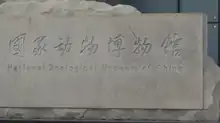 国家动物博物馆
National Zoological Museum of China